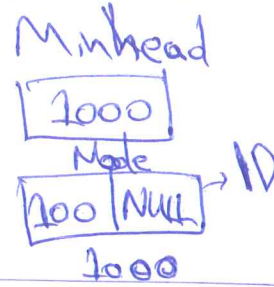 Minhead
1000
Node
100 NULL → 1D
1000